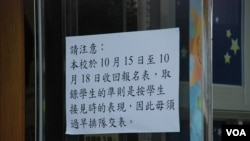 請注意：
本校於 10 月 15 日至 10
月 18 日收回報名表，取
錄學生的準則是按學生
接見時的表現，因此毋須
過早排隊交表。
VOA